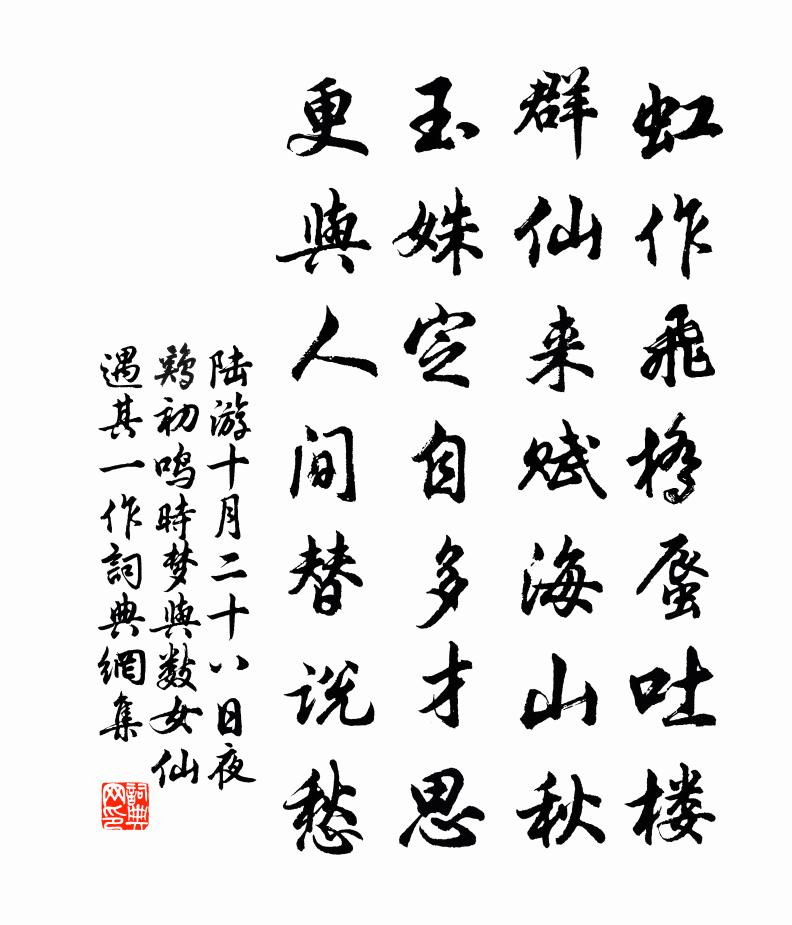 虹作飛橋蜃吐楼
群仙来赋海山秋
玉姝定自多才思
更與人间替说愁
陆游十月二十八日夜
鷄初鸣時梦與数女仙
遇其一作詞典網集
詞典网印